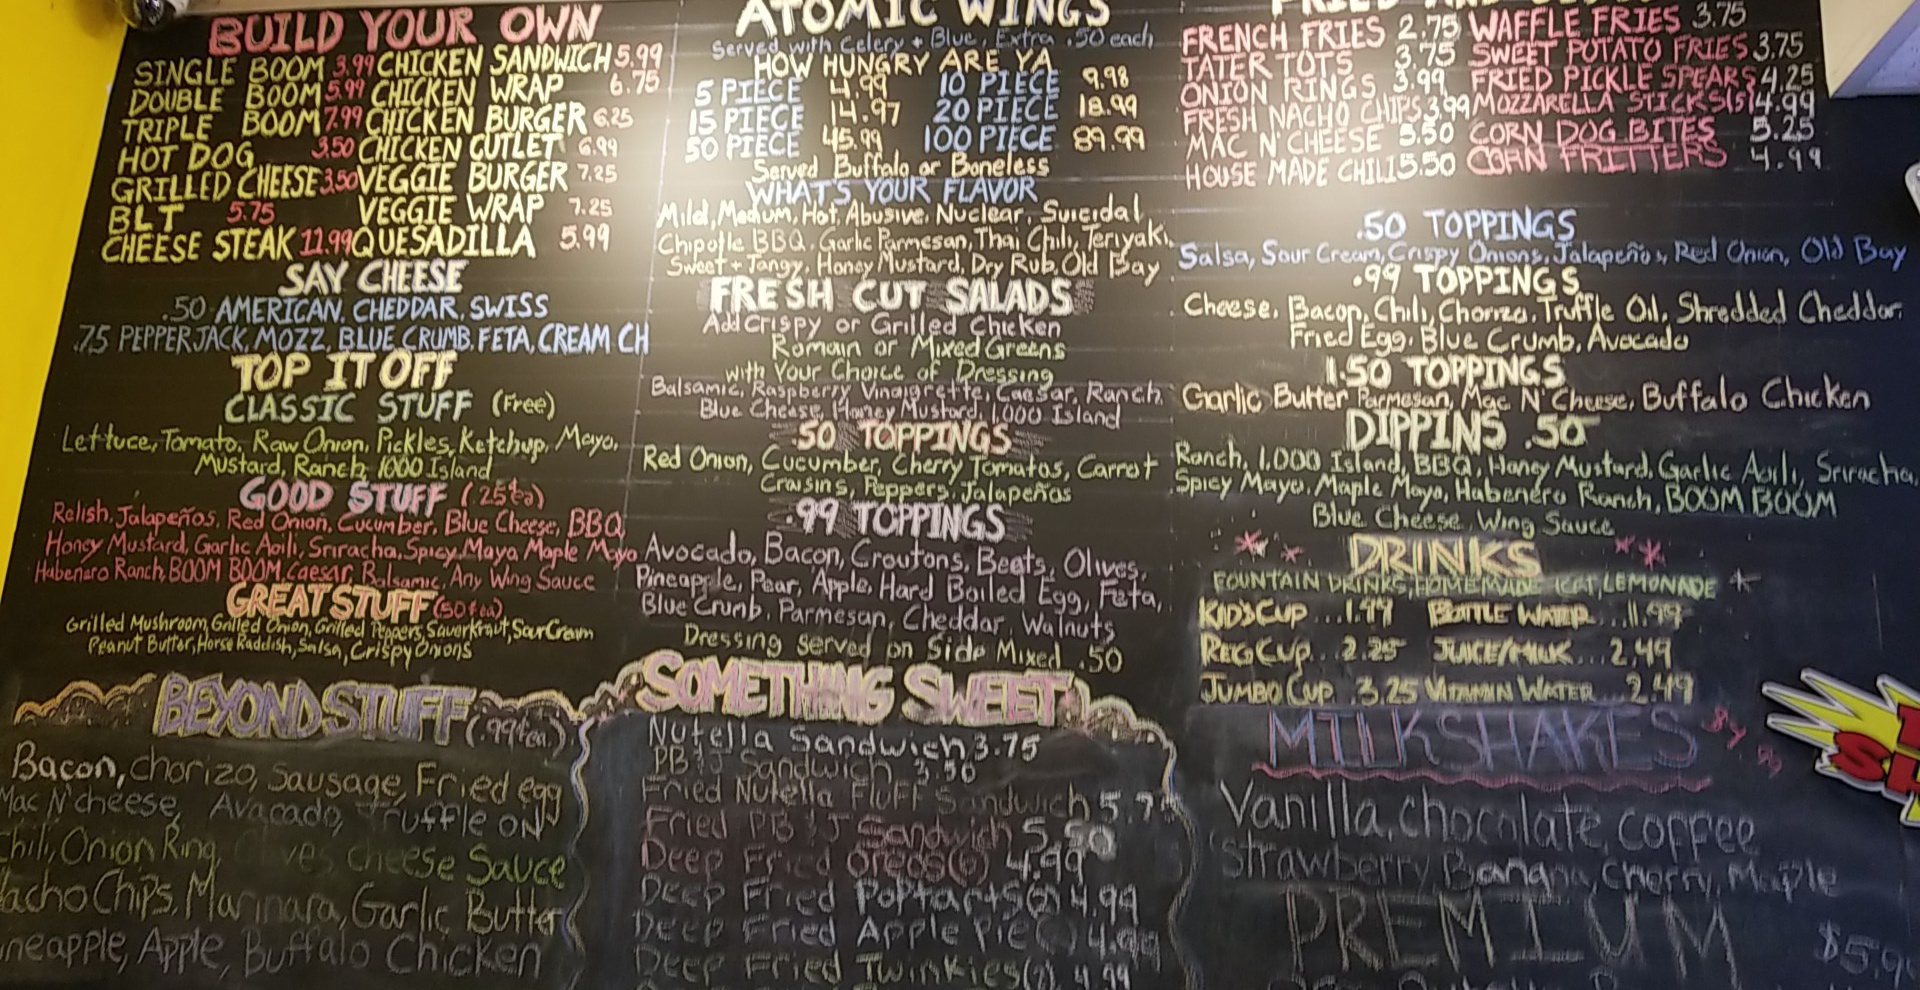 BUILD YOUR OWN
SINGLE BOOM 3.99 CHICKEN SANDWICH 5.99
DOUBLE BOOM 5.99 CHICKEN WRAP 6.75
TRIPLE BOOM 7.99 CHICKEN BURGER 6.25
HOT DOG 3.50 CHICKEN CUTLET 6.99
GRILLED CHEESE 3.50 VEGGIE BURGER 7.25
BLT 5.75 VEGGIE WRAP 7.25
CHEESE STEAK 11.99 QUESADILLA 5.99
SAY CHEESE
.50 AMERICAN, CHEDDAR, SWISS
.75 PEPPERJACK, MOZZ, BLUE CRUMB, FETA, CREAM CH
TOP IT OFF
CLASSIC STUFF (Free)
Lettuce, Tomato, Raw Onion, Pickles, Ketchup, Mayo,
Mustard, Ranch, 1000 Island
GOOD STUFF (25¢ea)
Relish, Jalapeños, Red Onion, Cucumber, Blue Cheese, BBQ
Honey Mustard, Garlic Aoili, Sriracha, Spicy Mayo Maple Mayo
Habenero Ranch, BOOM BOOM, Caesar, Balsamic, Any Wing Sauce
GREAT STUFF (50¢ea)
Grilled Mushroom, Grilled Onion, Grilled Peppers, Sauerkraut, Sour Cream
Peanut Butter, Horse Raddish, Salsa, Crispy Onions
BEYOND STUFF (.99¢ea)
Bacon, chorizo, Sausage, Fried egg
Mac N' cheese, Avacado, Truffle
Chili, Onion Ring, cheese Sauce
Nacho Chips, Marinara, Garlic Butter
Apple, Buffalo Chicken
ATOMIC WINGS
Served with Celery + Blue, Extra .50 each
HOW HUNGRY ARE YA
5 PIECE 4.99 10 PIECE 9.98
15 PIECE 14.97 20 PIECE 18.99
50 PIECE 45.99 100 PIECE 89.99
Served Buffalo or Boneless
WHAT'S YOUR FLAVOR
Mild, Medium, Hot, Abusive, Nuclear, Suicidal
Chipotle BBQ, Garlic Parmesan, Thai Chili, Teriyaki,
Sweet + Tangy, Honey Mustard, Dry Rub, Old Bay
FRESH CUT SALADS
Add Crispy or Grilled Chicken
Romain or Mixed Greens
with Your Choice of Dressing
Balsamic, Raspberry Vinaigrette, Caesar, Ranch,
Blue Cheese, Honey Mustard, 1,000 Island
.50 TOPPINGS
Red Onion, Cucumber, Cherry Tomatos, Carrot
Craisins, Peppers, Jalapeños
.99 TOPPINGS
Avocado, Bacon, Croutons, Beats, Olives,
Pineapple, Pear, Apple, Hard Boiled Egg, Feta,
Blue Crumb, Parmesan, Cheddar, Walnuts
Dressing served on Side Mixed .50
SOMETHING SWEET
Nutella Sandwich 3.75
PB & J Sandwich 3.50
Fried Nutella Fluff Sandwich 5.7
Fried PB & J Sandwich 5.50
Deep Fried Oreos(6) 4.99
Deep Fried Poptarts(2) 4.99
Deep Fried Apple Pie 4.99
Deep Fried Twinkies(2) 4.99
FRENCH FRIES 2.75 WAFFLE FRIES 3.75
TATER TOTS 3.75 SWEET POTATO FRIES 3.75
ONION RINGS 3.99 FRIED PICKLE SPEARS 4.25
FRESH NACHO CHIPS 3.99 MOZZARELLA STICKS(5) 4.99
MAC N' CHEESE 5.50 CORN DOG BITES 5.25
HOUSE MADE CHILI 5.50 CORN FRITTERS 4.99
.50 TOPPINGS
Salsa, Sour Cream, Crispy Onions, Jalapeños, Red Onion, Old Bay
.99 TOPPINGS
Cheese, Bacon, Chili, Chorizo, Truffle Oil, Shredded Cheddar,
Fried Egg, Blue Crumb, Avocado
1.50 TOPPINGS
Garlic Butter Parmesan, Mac N' Cheese, Buffalo Chicken
DIPPINS .50
Ranch, 1,000 Island, BBQ, Honey Mustard, Garlic Aoili, Sriracha,
Spicy Mayo, Maple Mayo, Habenero Ranch, BOOM BOOM
Blue Cheese, Wing Sauce
DRINKS
FOUNTAIN DRINKS, HOMEMADE ICET, LEMONADE
KID'S CUP...1.99 BOTTLE WATER...1.99
REG CUP...2.25 JUICE/MILK...2.49
JUMBO CUP.3.25 VITAMIN WATER...2.49
MILKSHAKES
Vanilla, chocolate, coffee
Strawberry, Banana, Cherry, Maple
PREMIUM